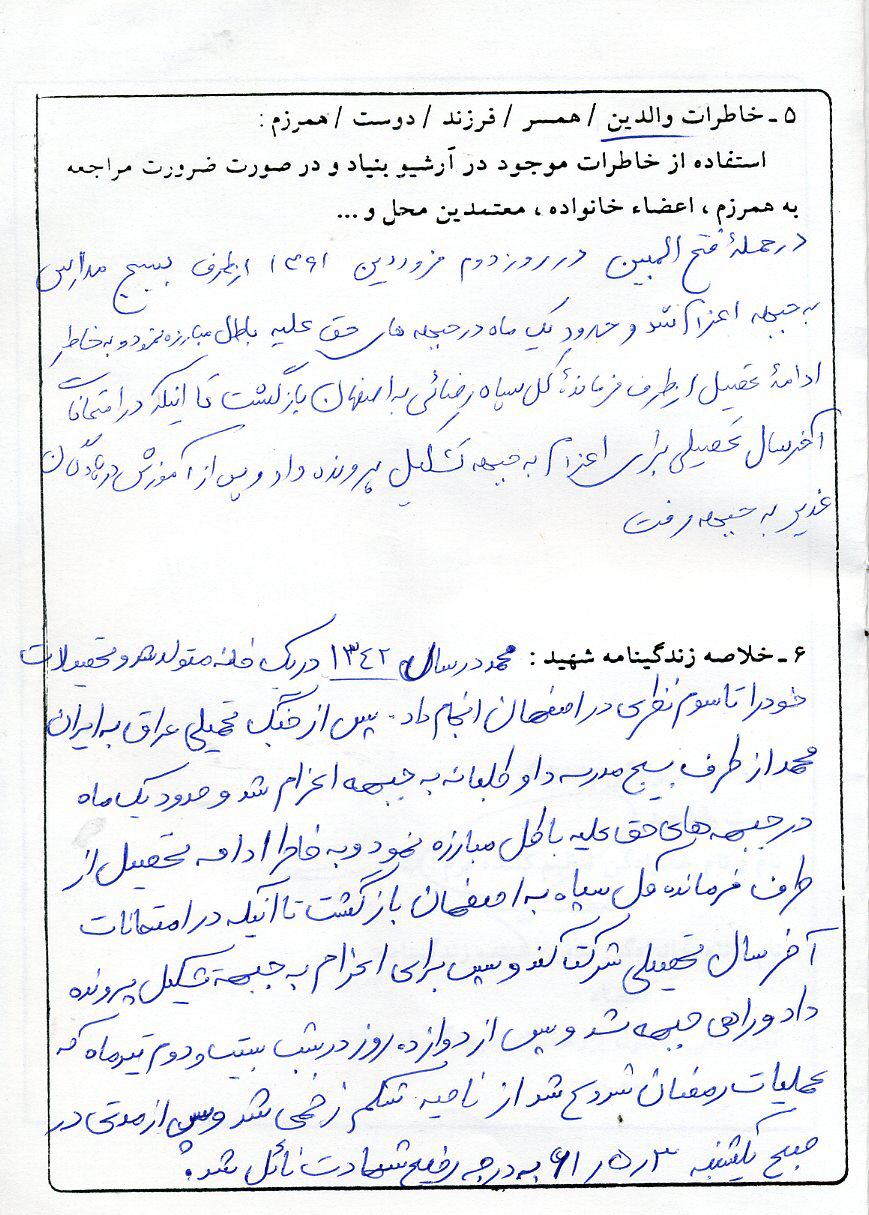 ۵ ـ خاطرات والدین / همسر / فرزند / دوست / همرزم :
استفاده از خاطرات موجود در آرشیو بنیاد و در صورت ضرورت مراجعه
به همرزم ، اعضاء خانواده ، معتمدین محل و ...
در حملهٔ فتح المبین در روز دوم فروردین ۱۳۶۱ از طرف بسیج مدارس
به جبهه اعزام شد و حدود یک ماه در جبهه های حق علیه باطل مبارزه نمود و به خاطر
ادامهٔ تحصیل از طرف فرماندهٔ کل سپاه رضائی به اصفهان بازگشت تا اینکه در امتحانات
آخر سال تحصیلی برای اعزام به جبهه تشکیل پرونده داد و پس از آموزش در پادگان
غدیر به جبهه رفت
۶ ـ خلاصه زندگینامه شهید : محمد در سال ۱۳۴۲ در یک خانه متولد شد و تحصیلات
خود را تا سوم نظری در اصفهان انجام داد. پس از جنگ تحمیلی عراق به ایران
محمد از طرف بسیج مدرسه داوطلبانه به جبهه اعزام شد و حدود یک ماه
در جبهه های حق علیه باطل مبارزه نمود و به خاطر ادامه تحصیل از
طرف فرمانده کل سپاه به اصفهان بازگشت تا آنیکه در امتحانات
آخر سال تحصیلی شرکت کند و سپس برای اعزام به جبهه تشکیل پرونده
داد و راهی جبهه شد و پس از دوازده روز در شب بیست و دوم تیرماه که
عملیات رمضان شروع شد از ناحیه شکم زخمی شد و پس از مدتی در
صبح یکشنبه ۳ر۵ر۶۱ به درجه رفیع شهادت نائل شد.